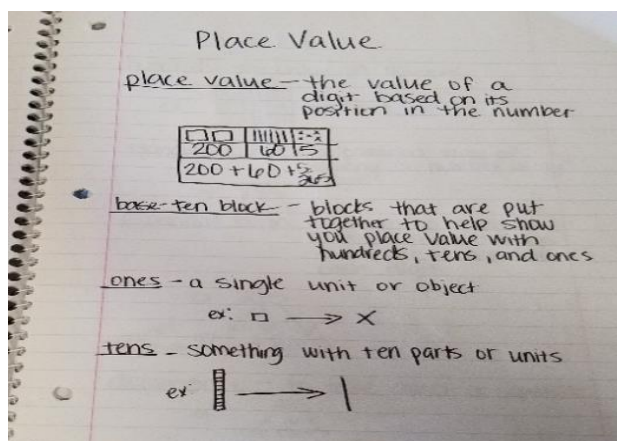 Place Value
place value - the value of a
digit based on its
position in the number
200 | 60 | 5
200 + 60 + 5
265
base-ten block - blocks that are put
together to help show
you place value with
hundreds, tens, and ones
ones - a single unit or object
ex: □ → X
tens - something with ten parts or units
ex: → |